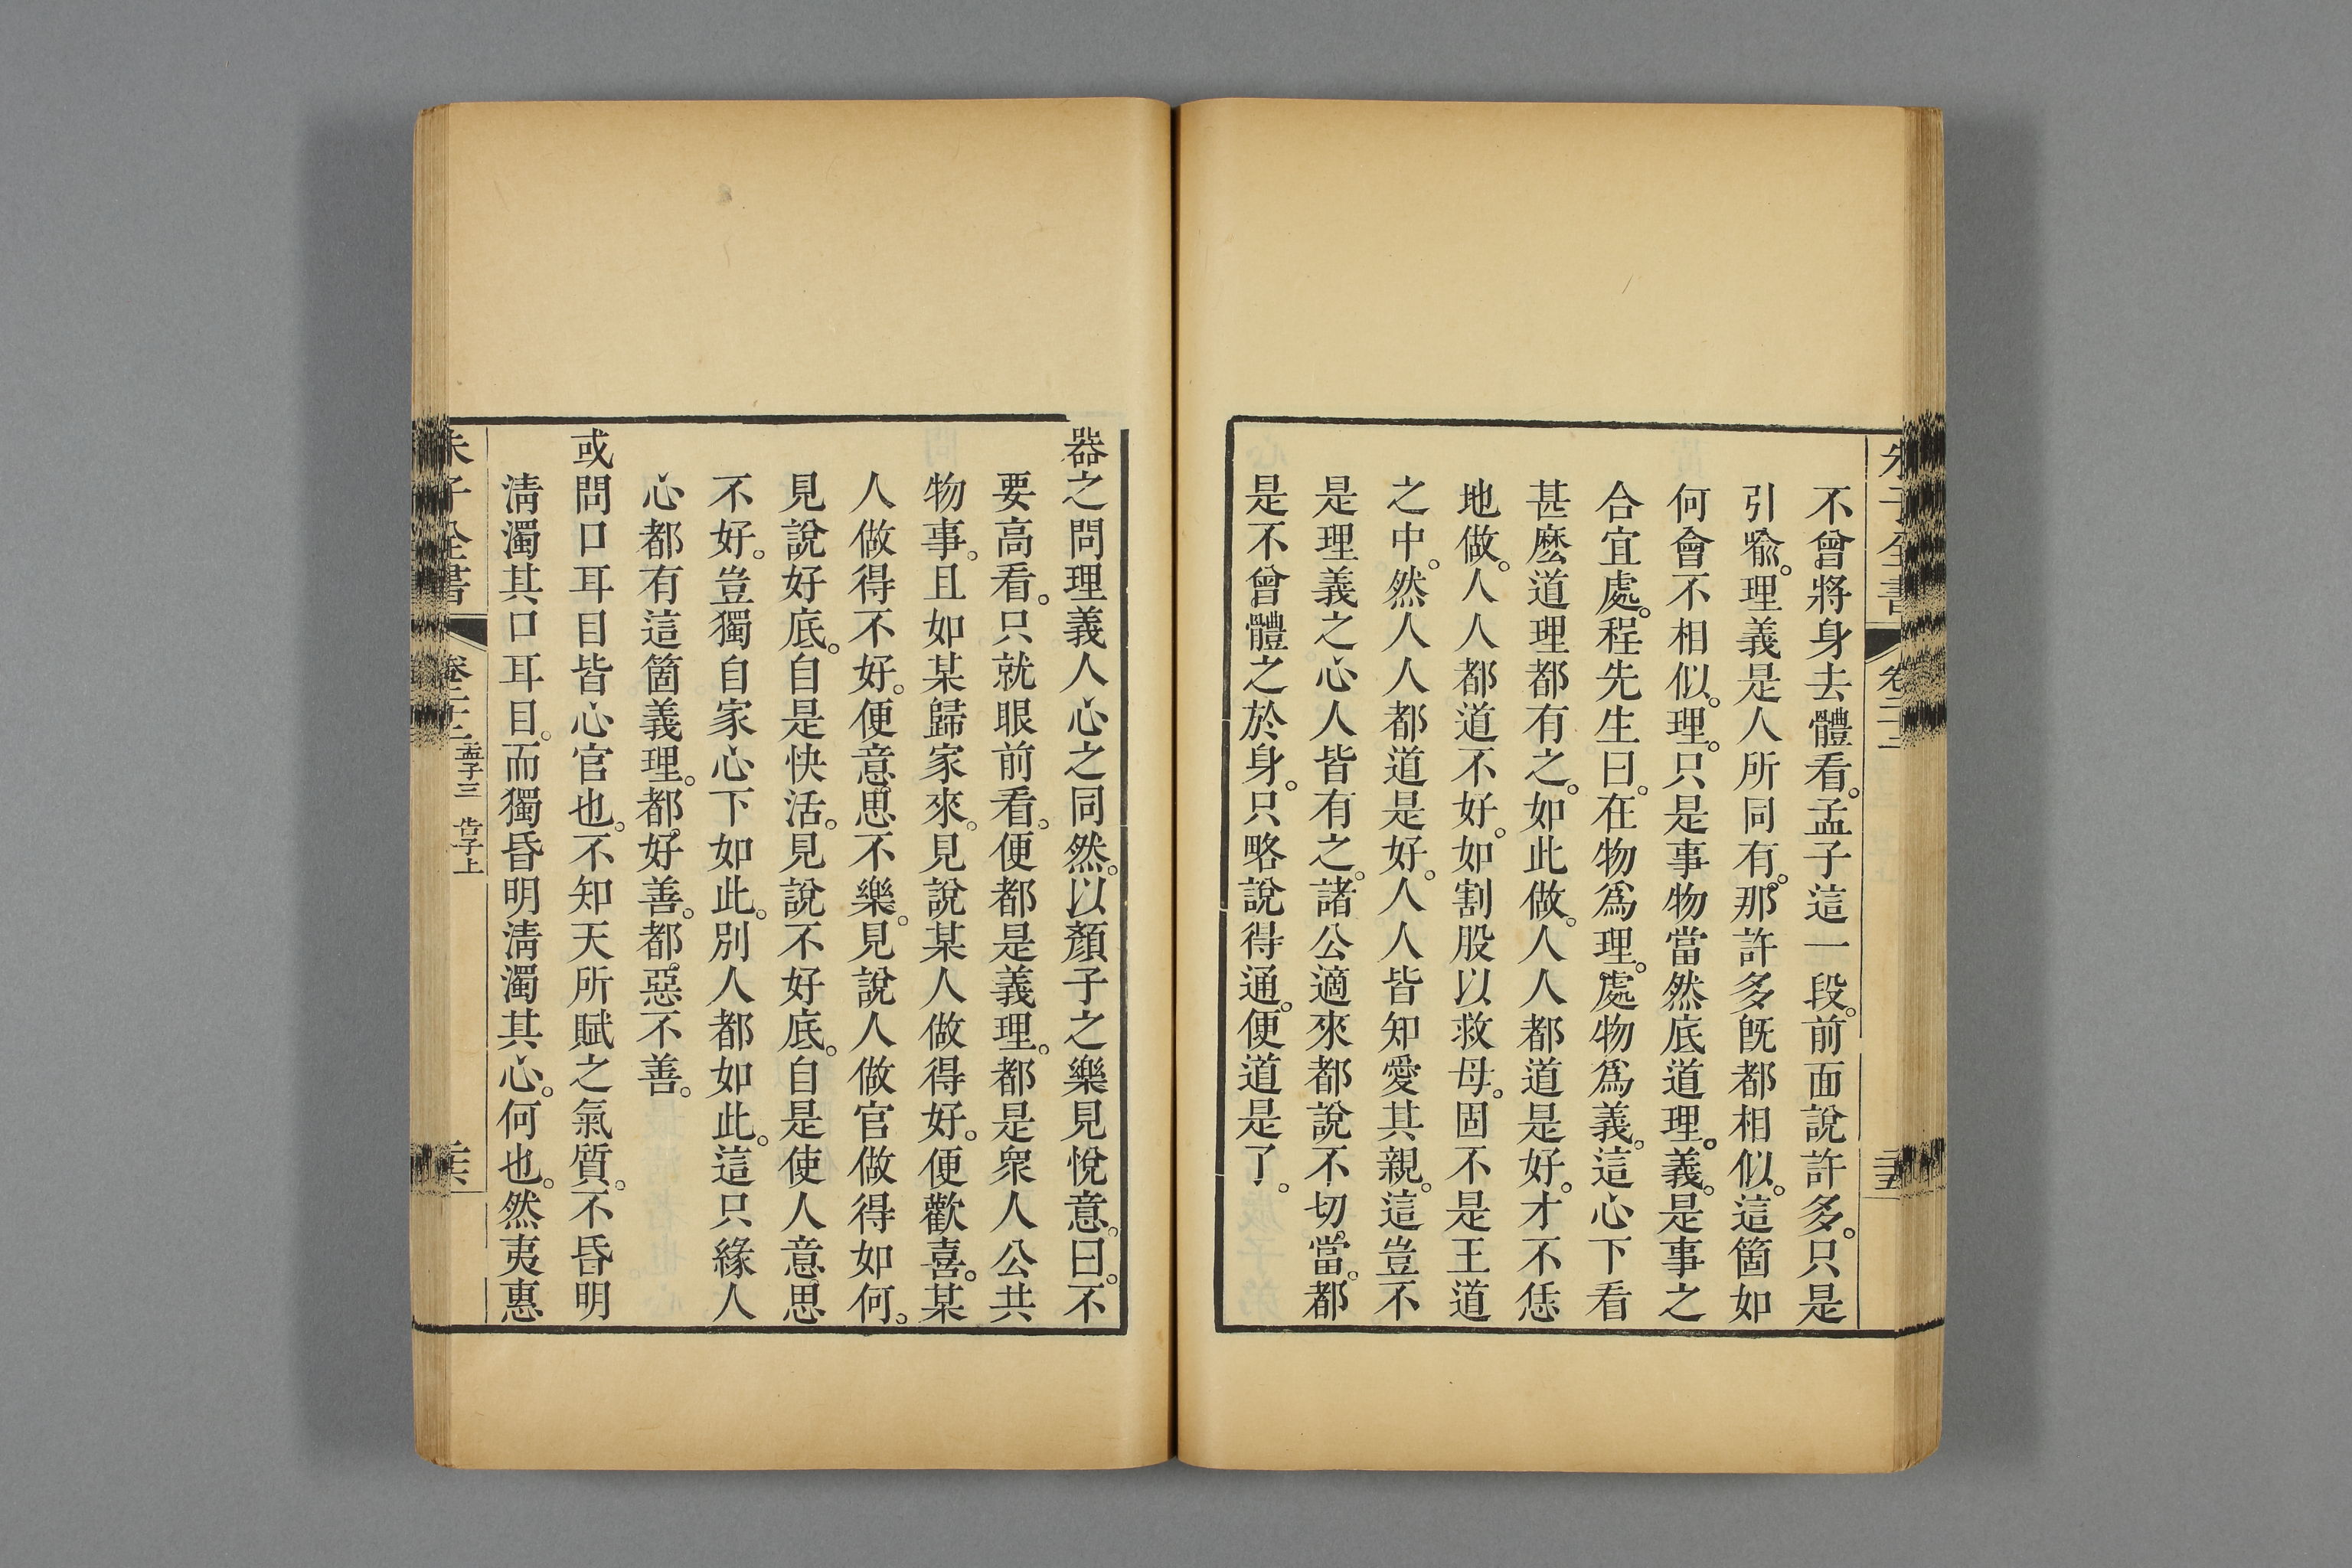 朱子全書 卷二十二 二十五
不曾將身去體看。孟子這一段。前面說許多。只是
引喻。理義是人所同有。那許多旣都相似。這箇如
何會不相似。理。只是事物當然底道理。義。是事之
合宜處。程先生曰。在物爲理。處物爲義。這心下看
甚麽道理都有之。如此做。人人都道是好。才不恁
地做。人人都道不好。如割股以救母。固不是王道
之中。然人人都道是好。人人皆知愛其親。這豈不
是理義之心人皆有之。諸公適來都說不切當。都
是不曾體之於身。只略說得通。便道是了。
器之問理義人心之同然。以顏子之樂見悅意。曰。不
要高看。只就眼前看。便都是義理。都是衆人公共
物事。且如某歸家來。見說某人做得好。便歡喜。某
人做得不好。便意思不樂。見說人做官做得如何。
見說好底。自是快活。見說不好底。自是使人意思
不好。豈獨自家心下如此。別人都如此。這只緣人
心都有這箇義理。都好善。都惡不善。
或問口耳目皆心官也。不知天所賦之氣質。不昏明
淸濁其口耳目。而獨昏明淸濁其心。何也。然夷惠
朱子全書 卷二十二 孟子三 告子上 二十六